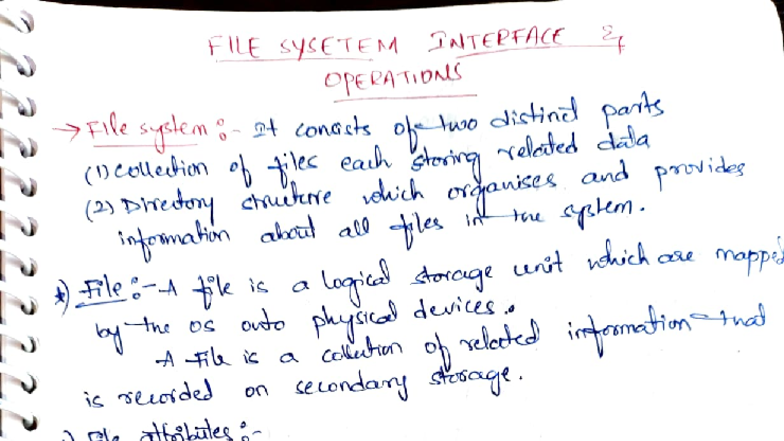 FILE SYSETEM INTERFACE &
OPERATIONS
→ File system :- It consists of two distinct parts
(1) collection of files each storing related data
(2) Directory structure which organises and provides
information about all files in the system.
*) File :- A file is a logical storage unit which are mapped
by the OS onto physical devices.
A File is a collection of related information that
is recorded on secondary storage.
) File attributes :-